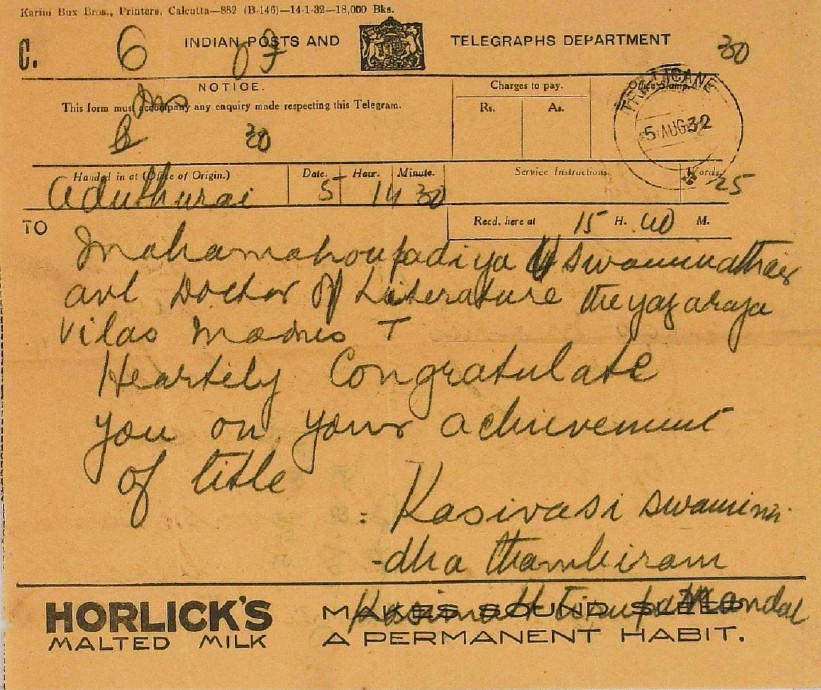 Karim Bux Bros., Printers, Calcutta—882 (B-146)—14-1-32—18,000 Bks.
C. 6 INDIAN POSTS AND TELEGRAPHS DEPARTMENT 30
NOTICE.
This form must accompany any enquiry made respecting this Telegram.
20
Charges to pay.
Rs. As.
Office Stamp.
TRIPLICANE
5 AUG 32
Handed in at (Office of Origin.) Date. Hour. Minute. Service Instructions. Words.
Aduthurai 5 14 30 25
TO
Recd. here at 15 H. 40 M.
Mahamahoupadiya Swaminathaier
avl Doctor of Literature theyagaraja
vilas Madras T
Heartily Congratulate
you on your achievement
of title
: Kasivasi Swamina
-dha thambiram
Kasimutt Tirupa
HORLICK'S MAKES SOUND SLEEP
MALTED MILK A PERMANENT HABIT.